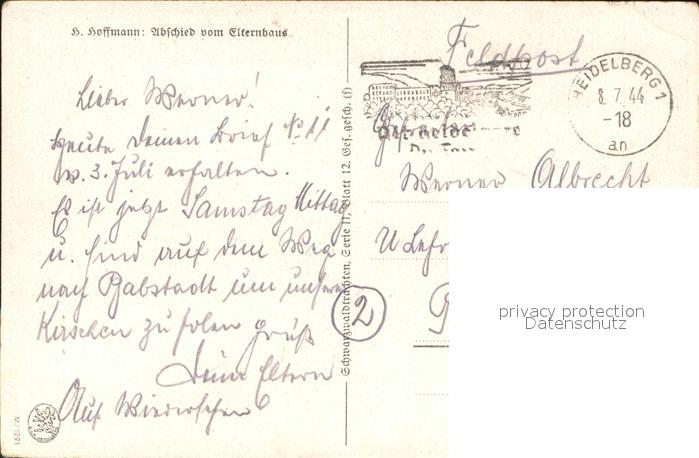 H. Hoffmann: Abschied vom Elternhaus
Lieber Werner!
Heute deinen Brief No 11
v. 3. Juli erhalten.
Es ist jetzt Samstag Mittag
u. sind auf dem Weg
nach Babstadt um unsere
Kirschen zu holen Gruß
Deine Eltern
Auf Wiedersehen
M/1221
Schwarzwaldtrachten, Serie II, Blatt 12. Ges. gesch. (f)
2
Feldpost
HEIDELBERG 1
8.7.44
-18
an
Werner Albrecht
privacy protection
Datenschutz